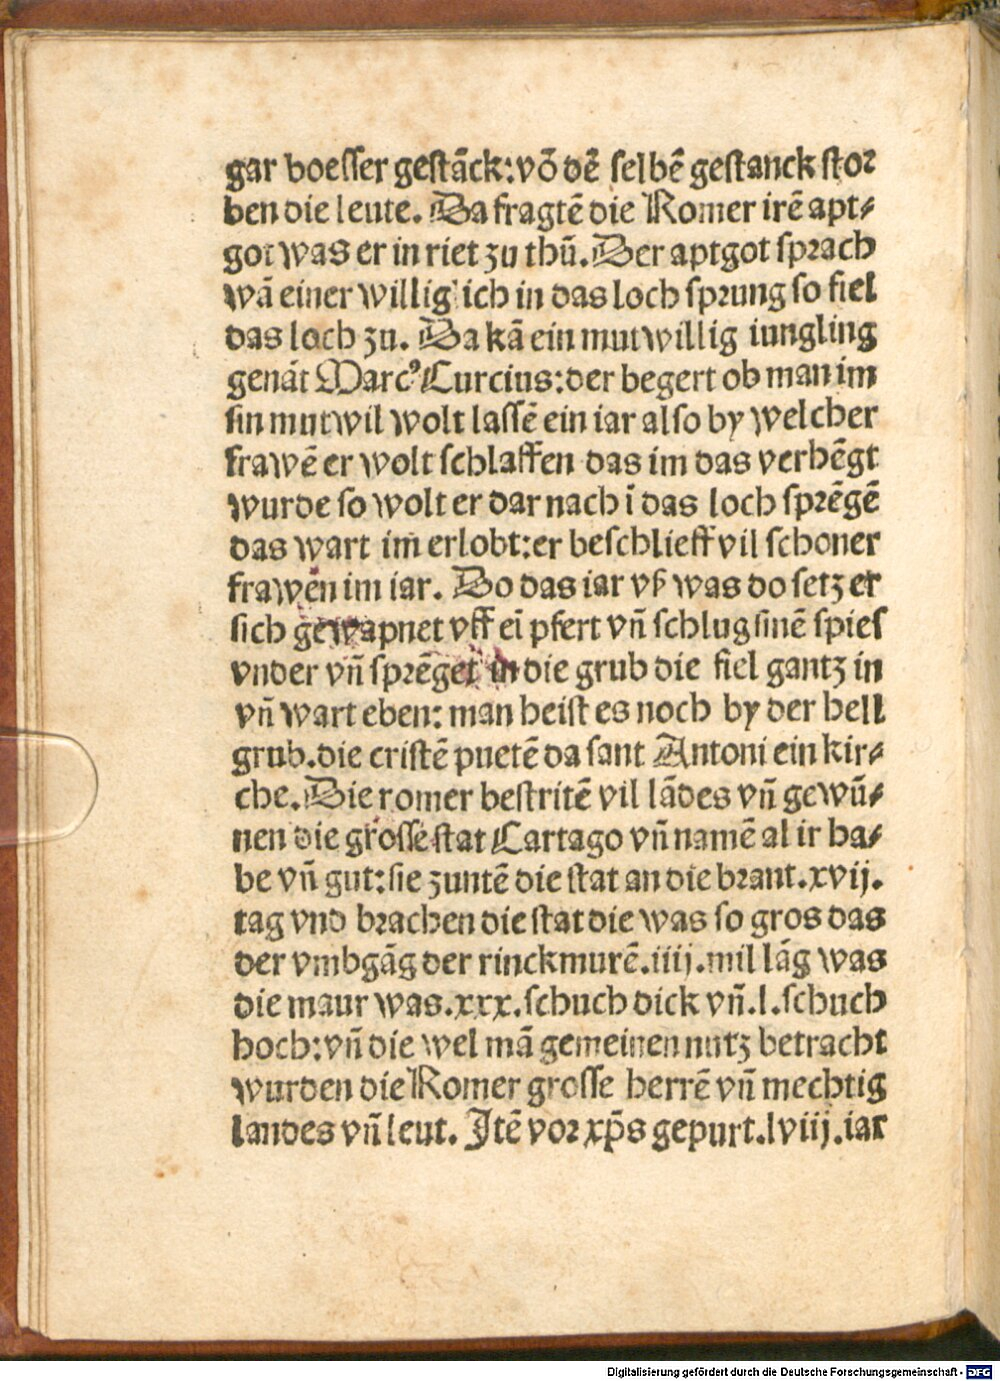 gar boeſſer geſtāck: vō dē ſelbē geſtanck ſtor
ben die leute. Da fragtē die Romer irē apt⸗
got was er in riet zu thū. Der aptgot ſprach
wā einer willig'ich in das loch ſprung ſo fiel
das loch zu. Da kā ein mutwillig iungling
genāt Marcꝰ Curcius: der begert ob man im
ſin mutwil wolt laſſē ein iar alſo by welcher
frawē er wolt ſchlaffen das im das verhēgt
wurde ſo wolt er dar nach ī das loch ſprēgē
das wart im̄ erlobt: er beſchlieff vil ſchoner
frawen im iar. Do das iar vß was do ſetz er
ſich gewapnet vff eī pfert vn̄ ſchlug ſinē ſpieſ
vnder vn̄ ſprēget in die grub die fiel gantz in
vn̄ wart eben: man heiſt es noch by der hell
grub. die criſtē puetē da ſant Antoni ein kir⸗
che. Die romer beſtritē vil lādes vn̄ gewū⸗
nen die groſſe ſtat Cartago vn̄ namē al ir ha⸗
be vn̄ gut: ſie zuntē die ſtat an die brant .xvij.
tag vnd brachen die ſtat die was ſo gros das
der vmbgāg der rinckmurē .iiij. mil lāg was
die maur was .xxx. ſchuch dick vn̄ .l. ſchuch
hoch: vn̄ die wel mā gemeinen nutz betracht
wurden die Romer groſſe herrē vn̄ mechtig
landes vn̄ leut. Itē vor xp̄s gepurt .lviij. iar
Digitalisierung gefördert durch die Deutsche Forschungsgemeinschaft - DFG